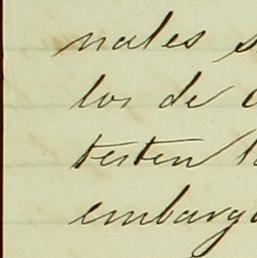 nales s
los de
testen l
embarg